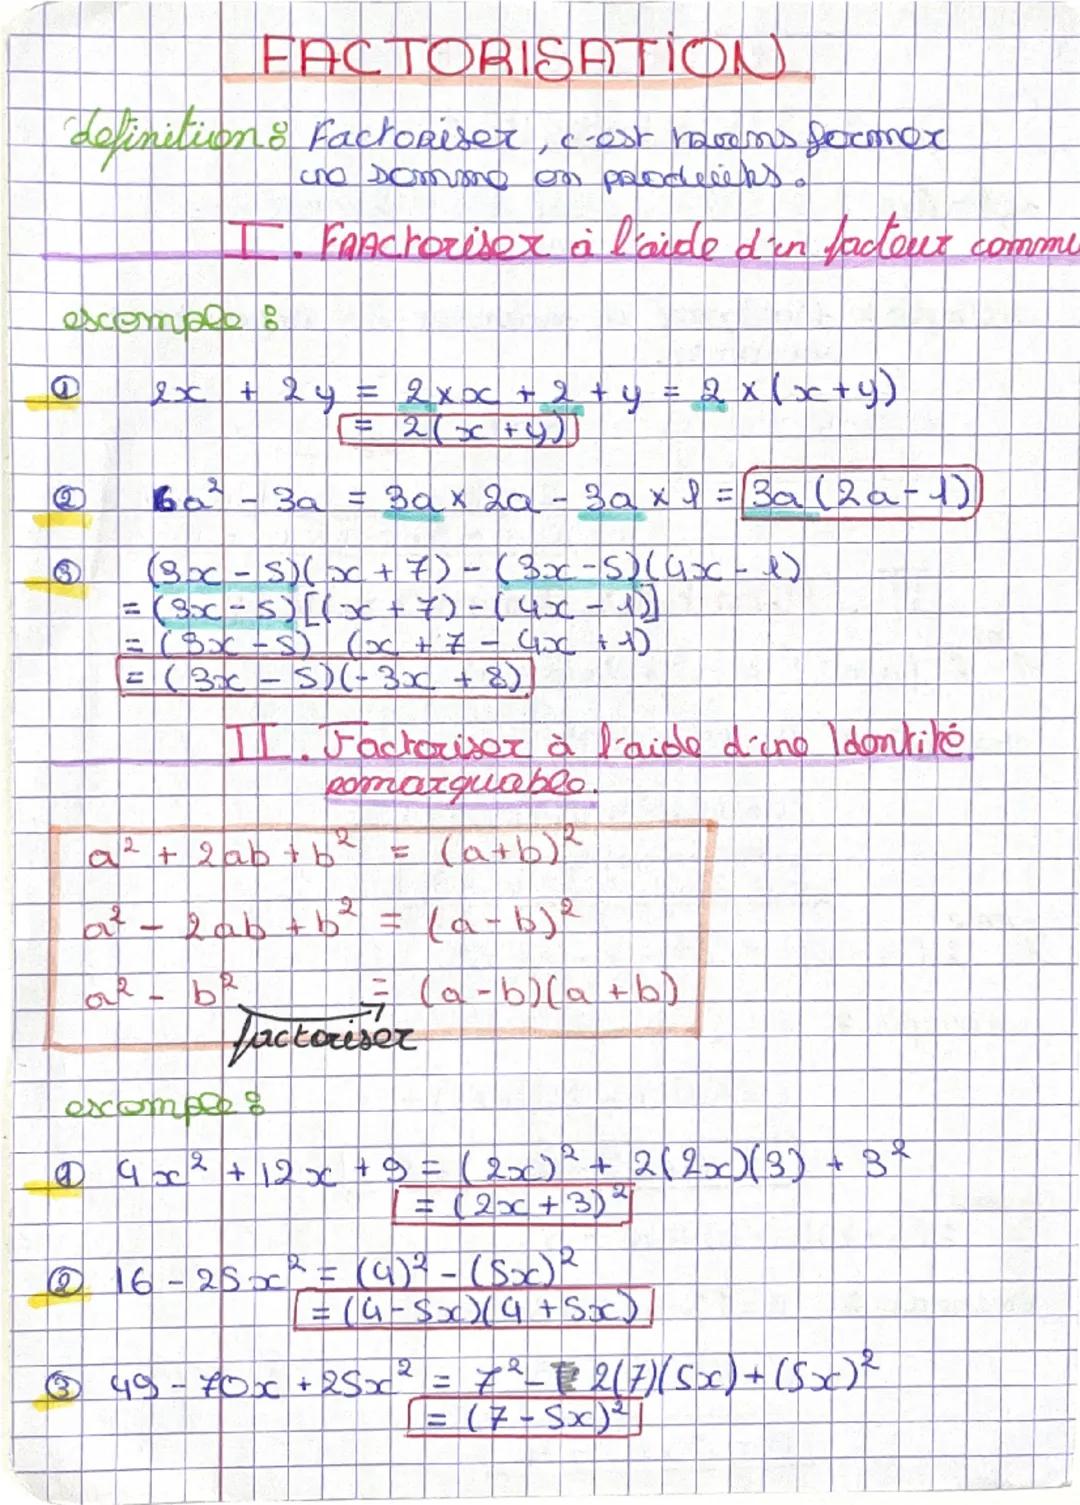 FACTORISATION
définition : Factoriser, c'est transformer
une somme en produits.
I. FAActoriser à l'aide d'un facteur commu
exemple :
① 2x + 2y = 2 × x + 2 + y = 2 × (x+y)
= 2(x+y)
② 6a² - 3a = 3a × 2a - 3a × 1 = 3a (2a-1)
③ (3x - 5)(x + 7) - (3x-5)(4x - 1)
= (3x-5)[(x+7)-(4x-1)]
= (3x-5) (x + 7 - 4x + 1)
= (3x - 5)(-3x + 8)
II. Factoriser à l'aide d'une Identité
remarquable.
a² + 2ab + b² = (a+b)²
a² - 2ab + b² = (a-b)²
a² - b² = (a-b)(a+b)
factoriser
exemple :
① 4x² + 12x + 9 = (2x)² + 2(2x)(3) + 3²
= (2x+3)²
② 16 - 25x² = (4)² - (5x)²
= (4-5x)(4+5x)
③ 49 - 70x + 25x² = 7² - 2(7)(5x) + (5x)²
= (7-5x)²